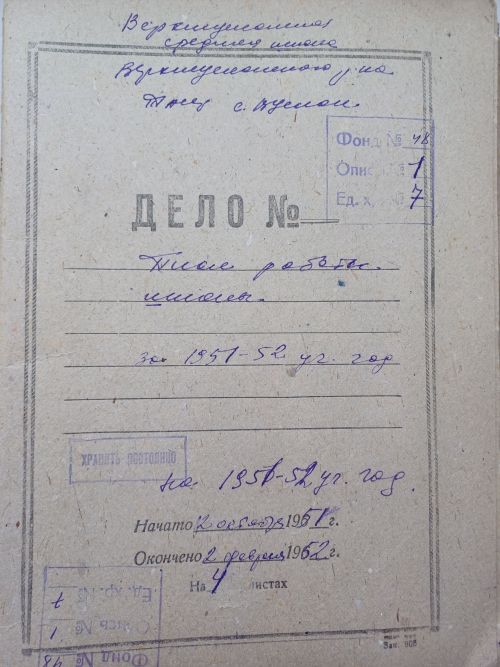 Верхнеуслонская
средняя школа
Верхнеуслонского р-на
ТАССР с. В. Услон
Фонд № 48
Опись № 1
Ед. х. № 7
ДЕЛО №
План работы
школы.
за 1951-52 уч. год
ХРАНИТЬ ПОСТОЯННО
на 1951-52 уч. год.
Начато 2 октября 1951 г.
Окончено 2 февраля 1952 г.
На 4 листах
Ед. хр. № 7
Опись № 1
Фонд № 48
Зак. 908